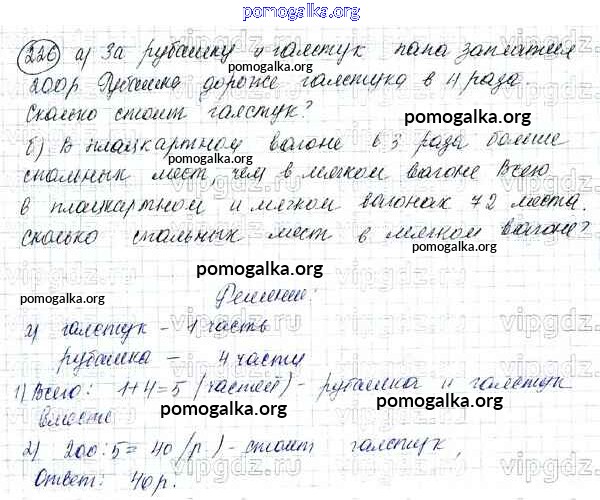 pomogalka.org
226) а) За рубашку и галстук папа заплатил
200р. Рубашка дороже галстука в 4 раза.
pomogalka.org
Сколько стоит галстук?
pomogalka.org
б) В плацкартном вагоне в 3 раза больше
pomogalka.org pomogalka.org
спальных мест, чем в мягком вагоне. Всего
в плацкартном и мягком вагонах 72 места.
Сколько спальных мест в мягком вагоне?
pomogalka.org
pomogalka.org
Решение:
vipgdz.ru
pomogalka.org
а) галстук - 1 часть
рубашка - 4 части
1) Всего: 1+4=5 (частей) - рубашка и галстук
pomogalka.org pomogalka.org
вместе
2) 200:5=40 (р.) - стоит галстук,
Ответ: 40р.
pomogalka.org